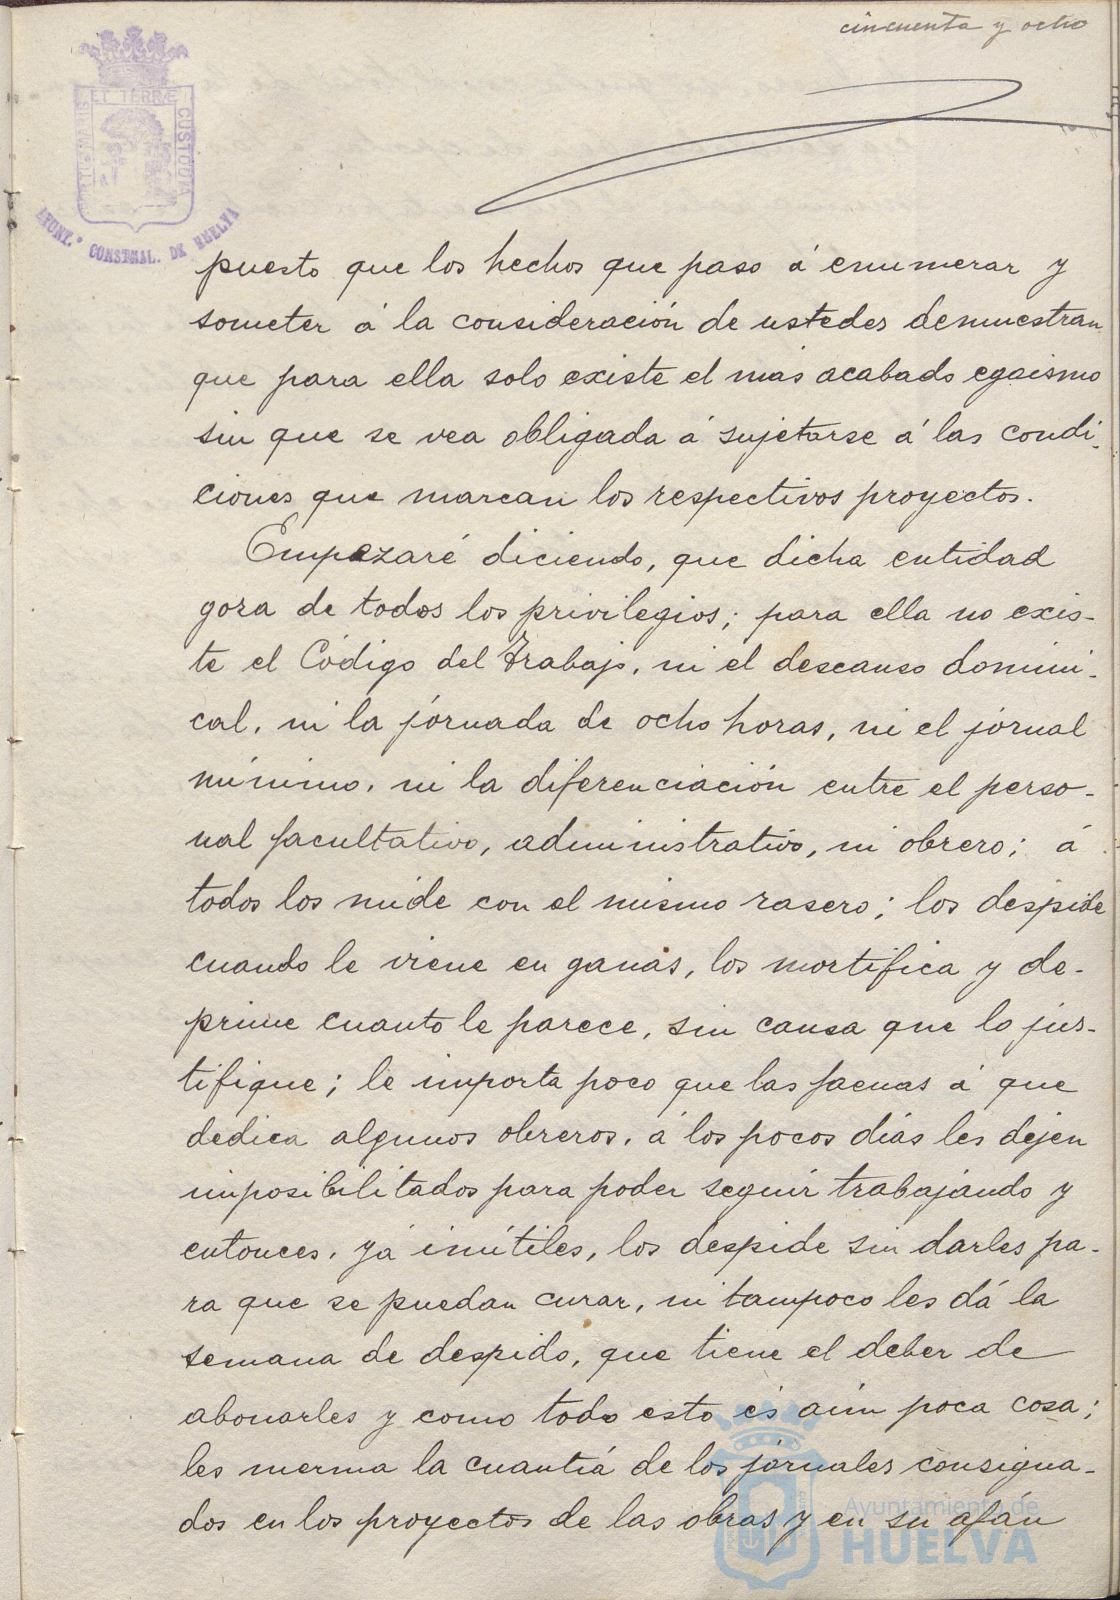 cincuenta y ocho
PORTUS MARIS ET TERRÆ CUSTODIA
AYUNT.º CONSTNAL. DE HUELVA
puesto que los hechos que paso á enumerar y
someter á la consideración de ustedes demuestran
que para ella solo existe el más acabado egoismo
sin que se vea obligada á sujetarse á las condi-
ciones que marcan los respectivos proyectos.
Empezaré diciendo, que dicha entidad
goza de todos los privilegios; para ella no exis-
te el Código del Trabajo, ni el descanso domini-
cal, ni la jórnada de ocho horas, ni el jórnal
mínimo, ni la diferenciación entre el perso-
nal facultativo, administrativo, ni obrero; á
todos los míde con el mismo rasero; los despide
cuando le viene en ganas, los mortifica y de-
prime cuanto le parece, sin causa que lo jus-
tifique; le importa poco que las faenas á que
dedica algunos obreros, á los pocos días les dejen
imposibilitados para poder seguir trabajando y
entonces, yá inútiles, los despide sin darles pa-
ra que se puedan curar, ni tampoco les dá la
semana de despido, que tiene el deber de
abonarles y como todo esto és aún poca cosa;
les merma la cuantiá de los jórnales consigna-
dos en los proyectos de las obras y en su afán
Ayuntamiento de
HUELVA